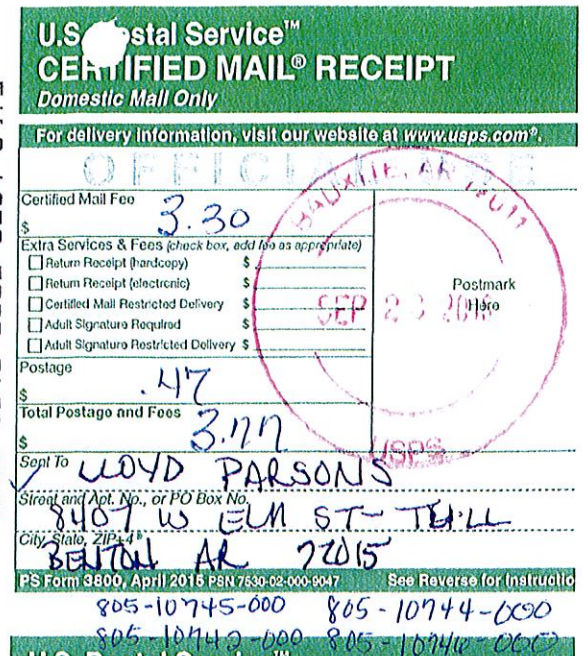 U.S. Postal Service™
CERTIFIED MAIL® RECEIPT
Domestic Mail Only
For delivery information, visit our website at www.usps.com®.
OFFICIAL USE
Certified Mail Fee
$ 3.30
Extra Services & Fees (check box, add fee as appropriate)
Return Receipt (hardcopy) $
Return Receipt (electronic) $
Certified Mail Restricted Delivery $
Adult Signature Required $
Adult Signature Restricted Delivery $
Postmark
Here
BAUXITE, AR 72011
SEP 2
USPS
Postage
$ .47
Total Postage and Fees
$ 3.77
Sent To LLOYD PARSONS
Street and Apt. No., or PO Box No.
W ELM ST
City, State, ZIP+4®
BENTON AR 72015
PS Form 3800, April 2015 PSN 7530-02-000-9047 See Reverse for Instructio
805-10745-000 805-10744-000
805-10742-000 805-10746-000